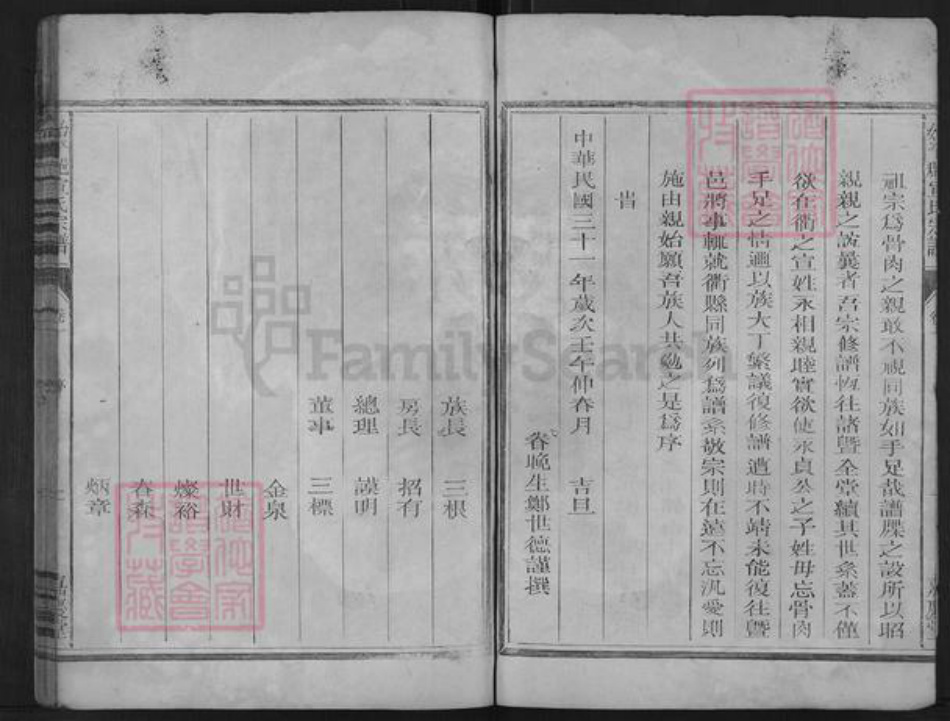 祖宗爲骨肉之親敢不視同族如手足哉譜牒之設所以昭
親親之誼異者吾宗修譜恆往諸暨全堂續其世系蓋不僅
欲在衢之宣姓永相親睦實欲使永貞公之子姓毋忘骨肉
手足之情邇以族大丁繁議復修譜遭時不靖未能復往暨
邑將事輒就衢縣同族列爲譜系敬宗則在遠不忘汎愛則
施由親始願吾族人共勉之是爲序
旹
中華民國三十一年歲次壬午仲春月 吉旦
眷晚生鄭世德謹撰
族長 三根
房長 招有
總理 謨明
董事 三標
金泉
世財
燦裕
春森
炳章
FamilySearch